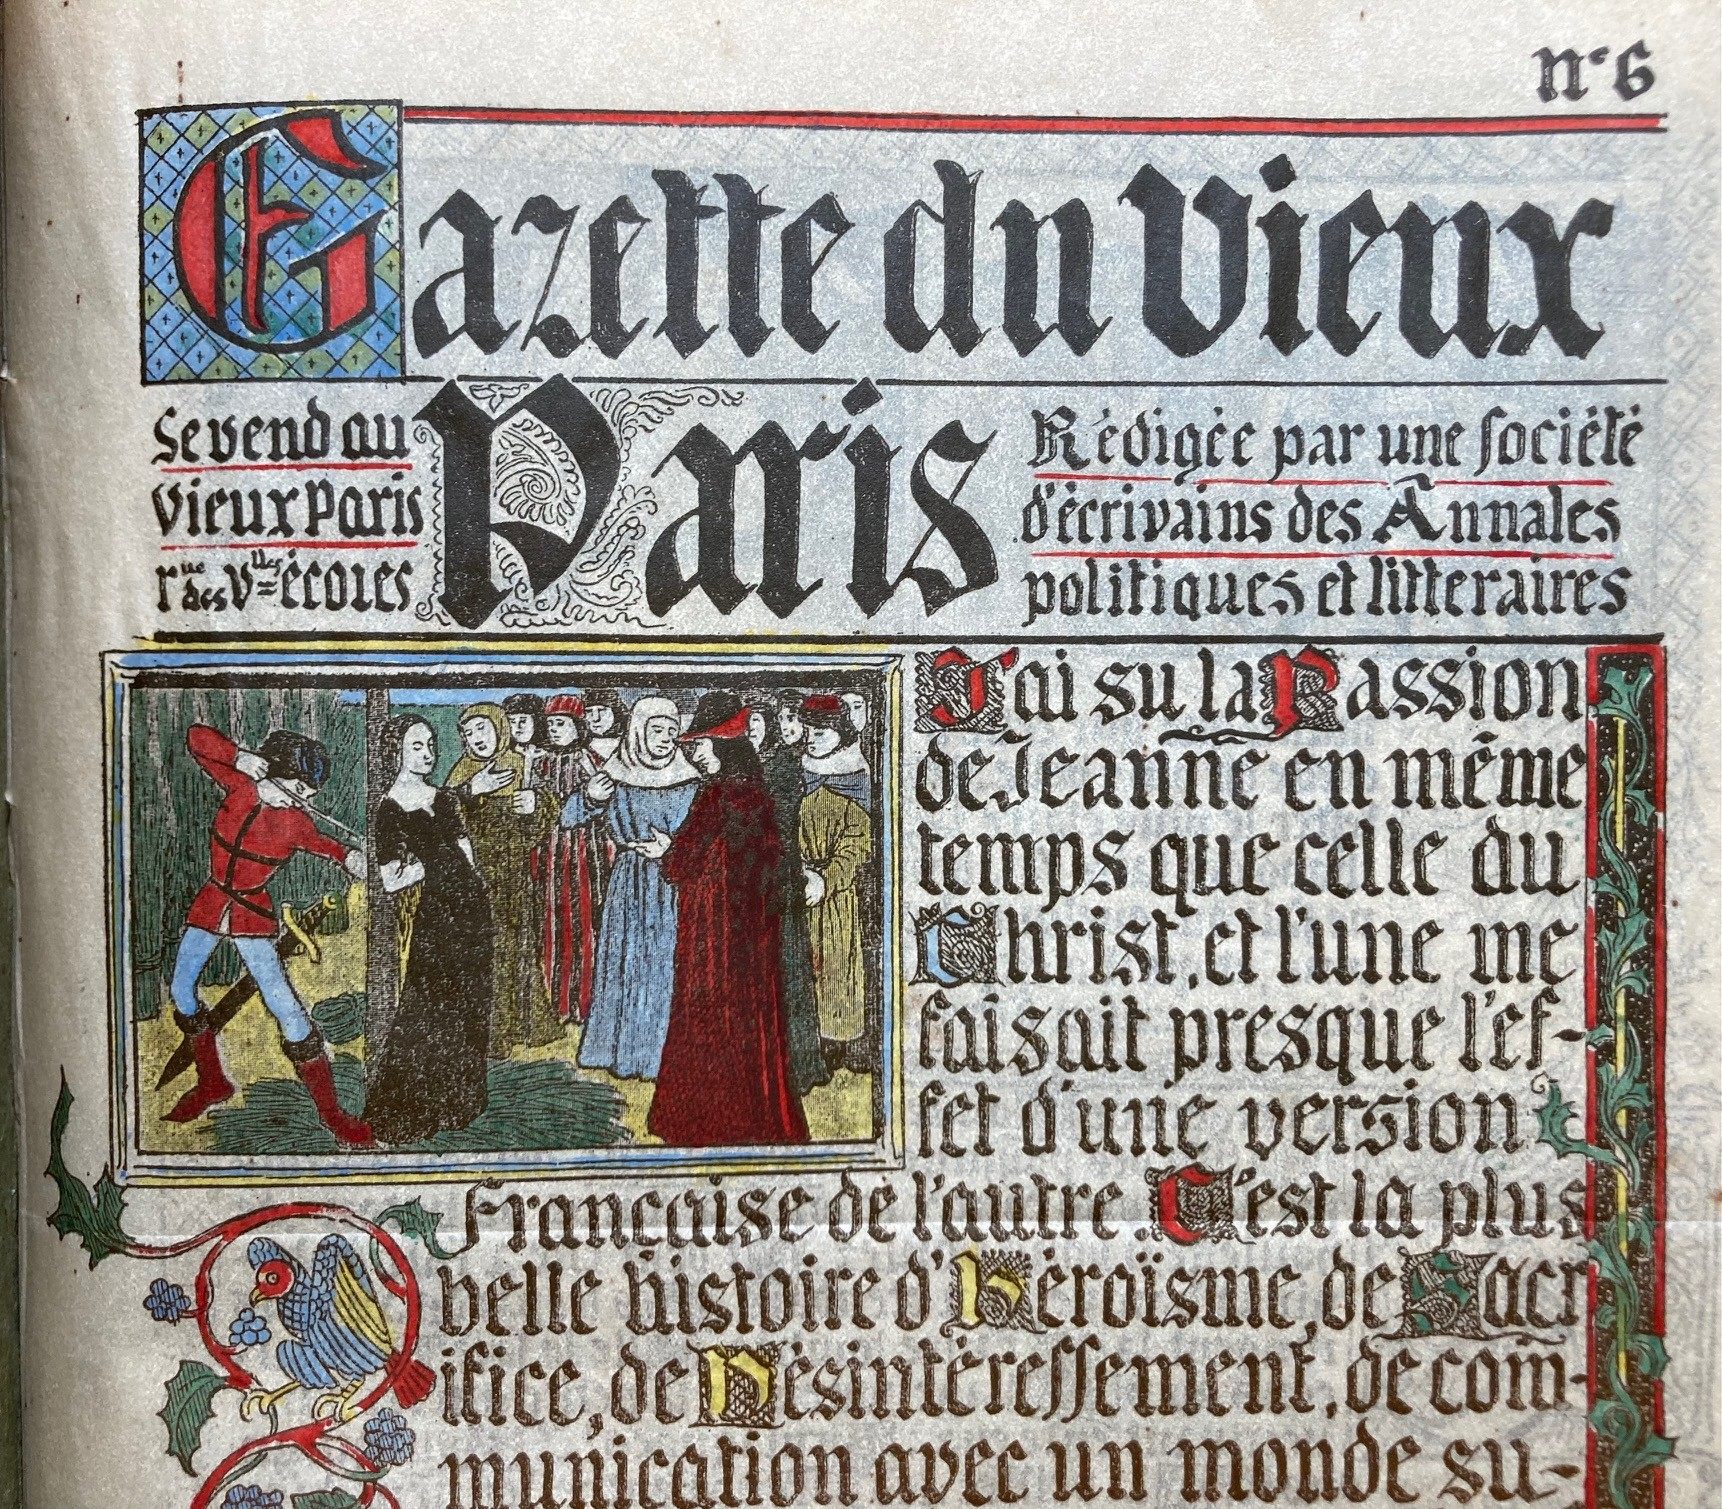 nº 6
Gazette du Vieux
Paris
Se vend au
Vieux Paris
rue des Vlles écoles
Rédigée par une société
d'écrivains des Annales
politiques et litteraires
J'ai su la Passion
de Jeanne en même
temps que celle du
Christ, et l'une me
faisait presque l'ef-
fet d'une version
Française de l'autre. C'est la plus
belle histoire d'Héroïsme, de Sacr
ifice, de Désintéressement, de com-
munication avec un monde su-